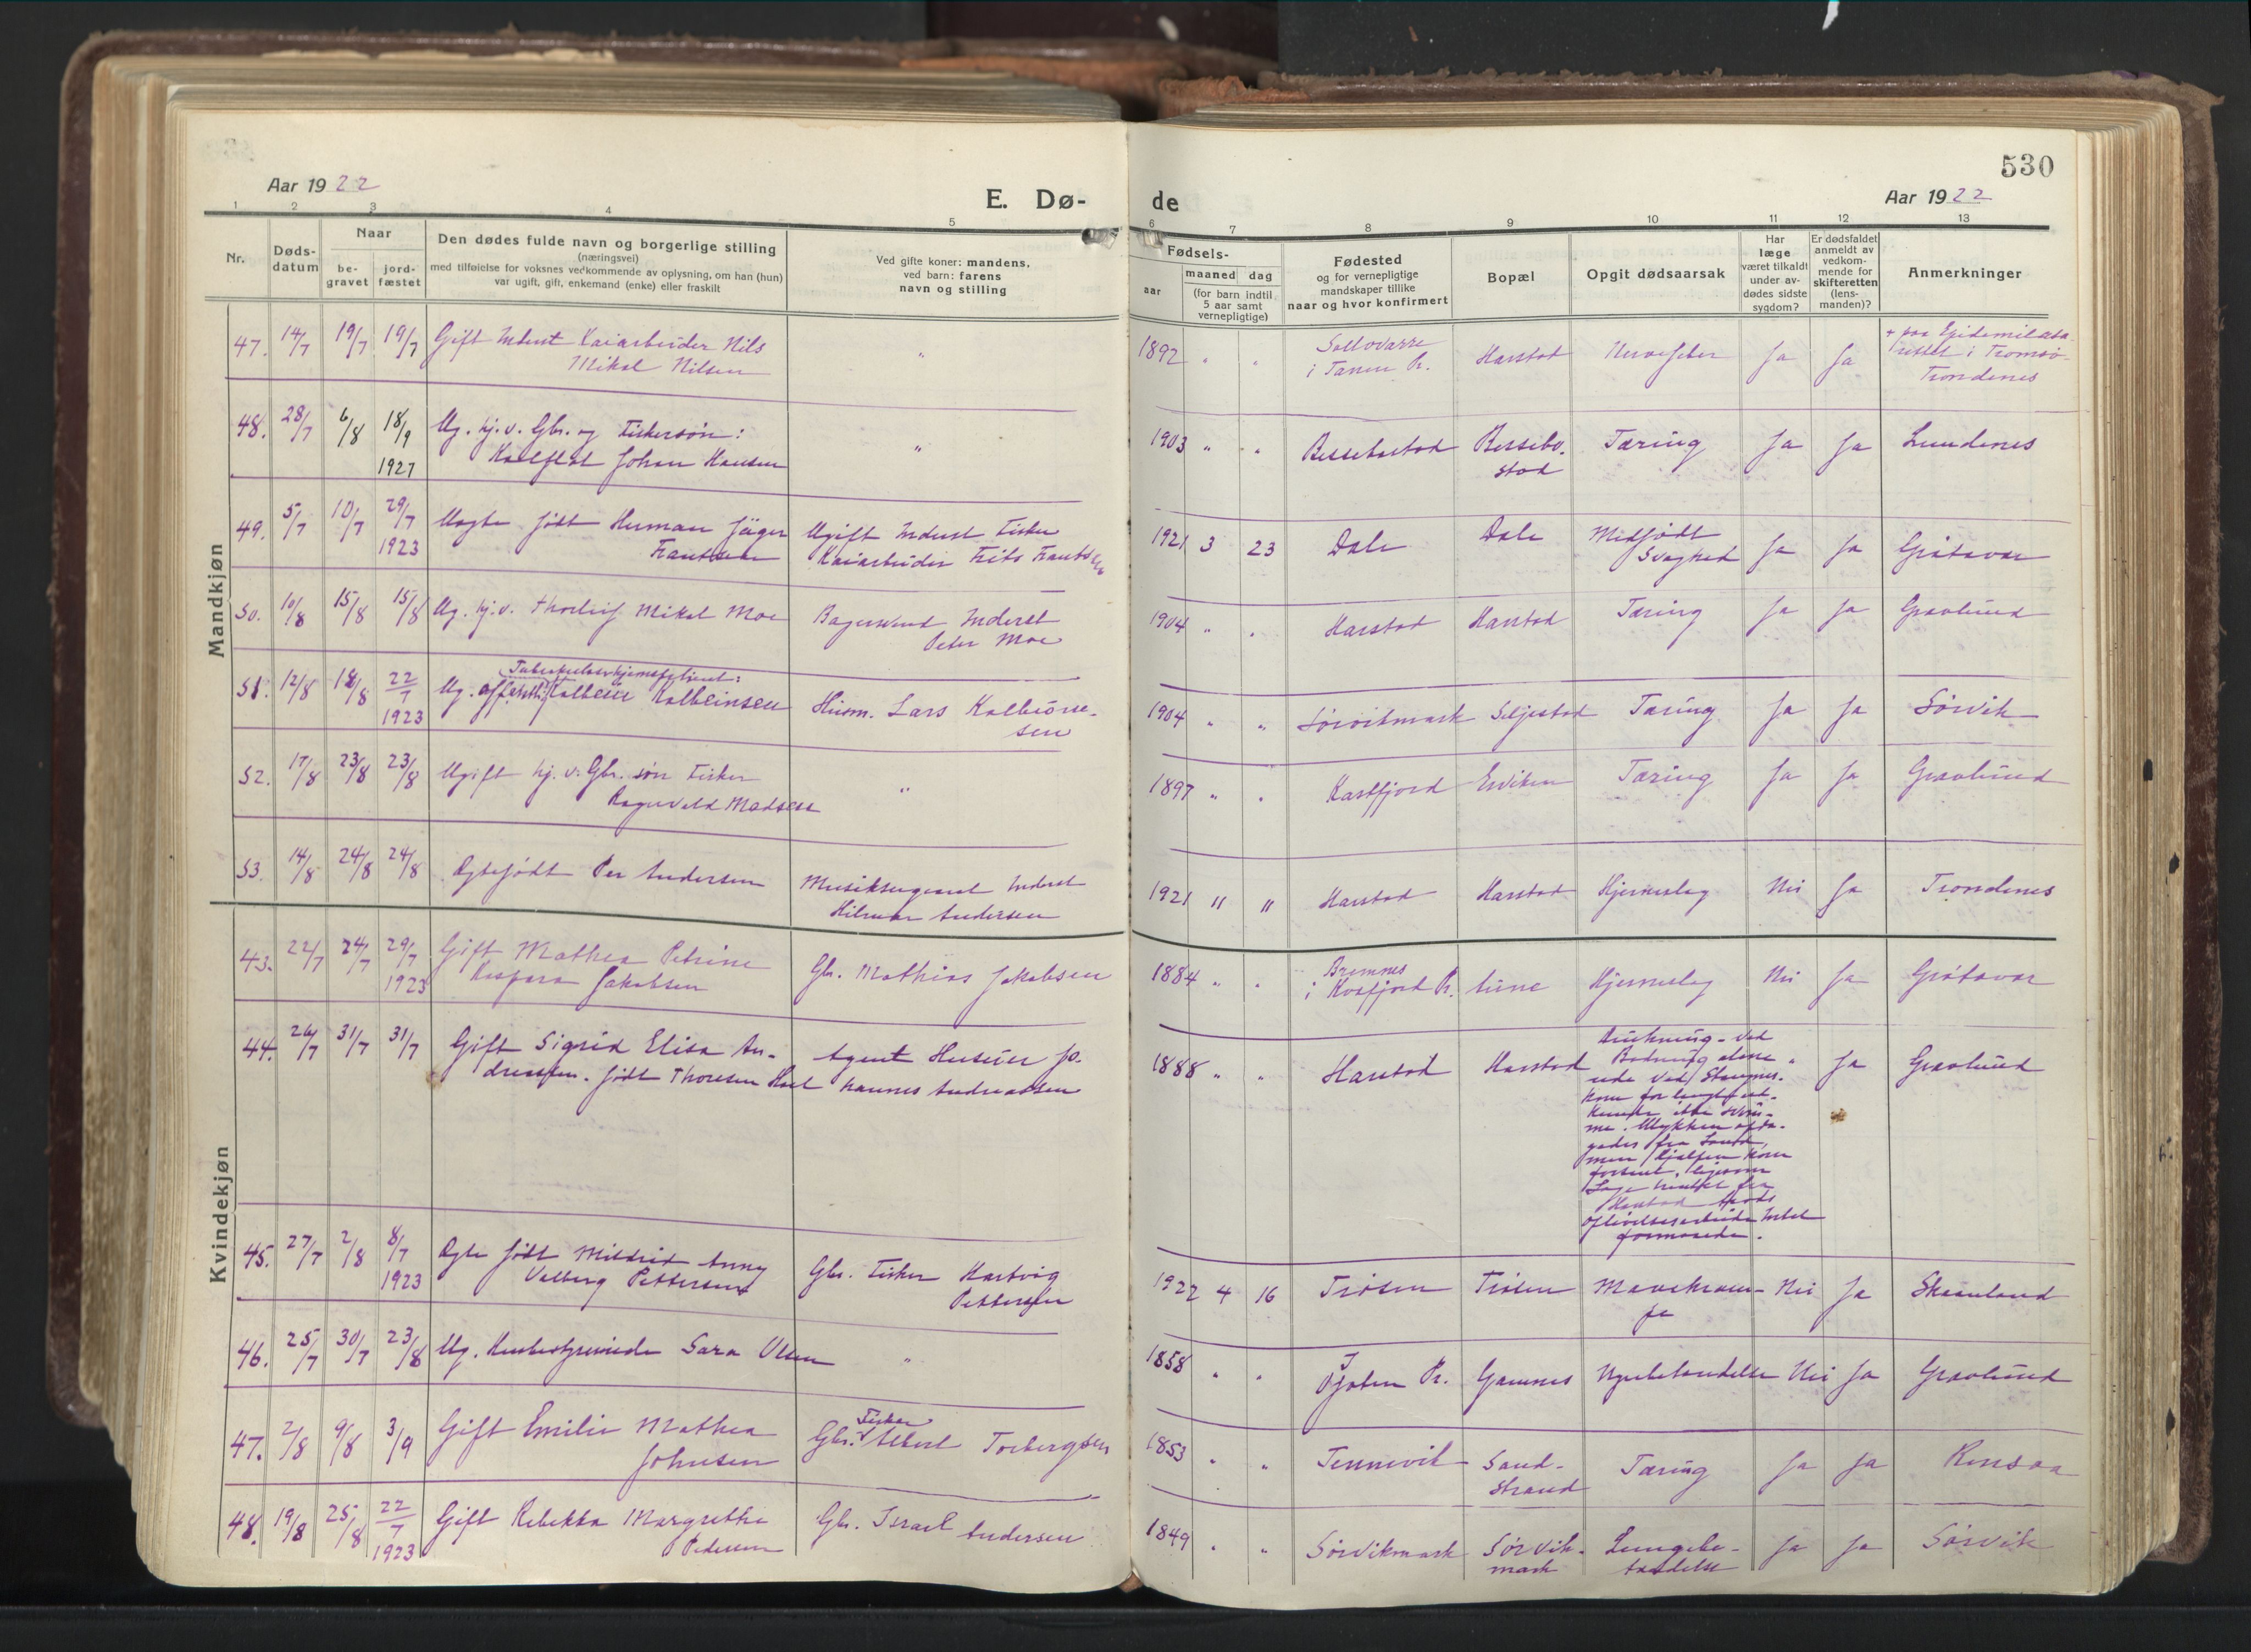 530
Aar 1922
E. Dø-
de
Aar 1922
1 2 3 4 5 6 7 8 9 10 11 12 13
Nr.
Døds-
datum
Naar
be-
gravet
jord-
fæstet
Den dødes fulde navn og borgerlige stilling
(næringsvei)
med tilføielse for voksnes vedkommende av oplysning, om han (hun)
var ugift, gift, enkemand (enke) eller fraskilt
Ved gifte koner: mandens,
ved barn: farens
navn og stilling
Fødsels-
aar
maaned dag
(for barn indtil
5 aar samt
vernepligtige)
Fødested
og for vernepligtige
mandskaper tillike
naar og hvor konfirmert
Bopæl
Opgit dødsaarsak
Har
læge
været tilkaldt
under av-
dødes sidste
sygdom?
Er dødsfaldet
anmeldt av
vedkom-
mende for
skifteretten
(lens-
manden)?
Anmerkninger
Mandkjøn
47. 14/7 19/7 19/7 Gift Inderst Kaiarbeider Nils
Mikal Nilsen
" 1892 " "
i Tanen Pr. Harstad Nervefeber Ja Ja
i Tromsø
Trondenes
48. 28/7 6/8 18/9
1927
Ug. hj.v. Gbr. og Fiskersøn:
Johan Hansen
" 1903 " " Bessebostad Bessebo-
stad
Tæring Ja Ja Lundenes
49. 5/7 10/7 29/7
1923
Uegte født Herman Jäger
Frantsen
Ugift Inderst Fisker
Kaiarbeider Frits Frantsen
1921 3 23 Dale Dale Medfødt
Svaghed
Ja Ja Grøtavær
50. 10/8 15/8 15/8 Ug. hj.v. Thorleif Mikal Moe
Bagersvend Inderst
Peter Moe
1904 " " Harstad Harstad Tæring Ja Ja Gravlund
51. 12/8 18/8 22/7
1923
Ug. Kolbein Kolbeinsen
Husm. Lars Kolbeinsen
sen
1904 " " Sørvikmark Seljestad Tæring Ja Ja Sørvik
52. 17/8 23/8 23/8 Ugift hj.v. Gbr. søn Fisker
Ragnvald Madsen
" 1897 " " Kastfjord Ervikens Tæring Ja Ja Gravlund
53. 14/8 24/8 24/8 Ægtefødt Per Andersen
Musiksergeant Inderst
Hilmar Andersen
1921 " " Harstad Harstad Hjerneslag Nei Ja Trondenes
Kvindekjøn
43. 22/7 24/7 29/7
1923
Gift Mathea Petrine
Kaspara Jakobsen
Gbr. Mathias Jakobsen
1884 " " Bremnes
i Kvæfjord Pr.
Hjerneslag Nei Ja Grøtavær
44. 26/7 31/7 31/7 Gift Sigrid Elisa An-
dreassen. født Thoresen
Agent Huseier Jo-
hannes Andreassen
1888 " " Harstad Harstad Drukning - Ved
Badning alene
nede ved Stangnes.
Kom for langt ud.
Kunde ikke svøm-
me. Ulykken opda-
gedes fra Land,
men hjælpen kom
forsent, ligesom
Læge hentet fra
Harstad
" Ja Gravlund
45. 27/7 2/8 8/7
1923
Ægte født Mildrid Anny
Valborg Pettersen
Gbr. Fisker Hartvig
Pettersen
1922 4 16 Trøsen Trøsen Mavekram-
pe
Nei Ja Skaanland
46. 25/7 30/7 23/8 Ug. Husbestyrerinde Sara Olsen
" 1858 " " Ofoten Pr. Gamnes Nyrebetændelse Nei Ja Gravlund
47. 2/8 9/8 3/9 Gift Emilie Mathea
Johnsen
Fisker
Gbr. Albert Torbergsen
1853 " " Tennevik Sand-
strand
Tæring Ja Ja Rensaa
48. 19/8 25/8 22/7
1923
Gift Rebekka Margrethe
Pedersen
Gbr. Israel Andersen
1849 " " Sørvikmark Sørvik-
mark
Lungebe-
tændelse
Ja Ja Sørvik